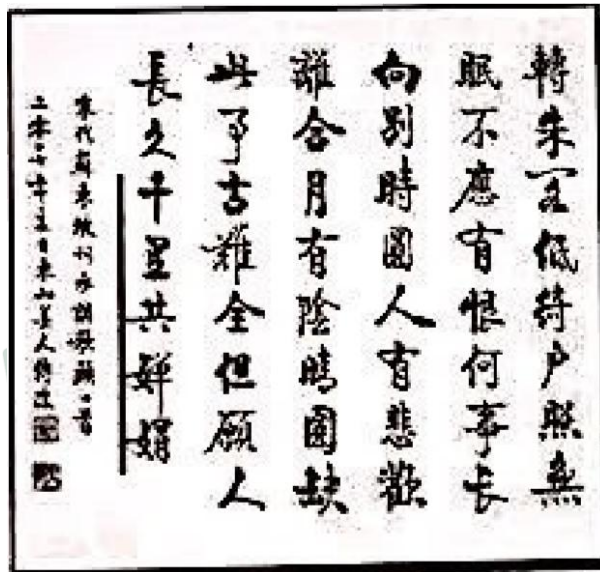 轉朱閣低绮户照無
眠不應有恨何事长
向别時圓人有悲歡
離合月有陰晴圓缺
此事古難全但願人
長久千里共嬋娟
宋代蘇東坡詞水調歌頭